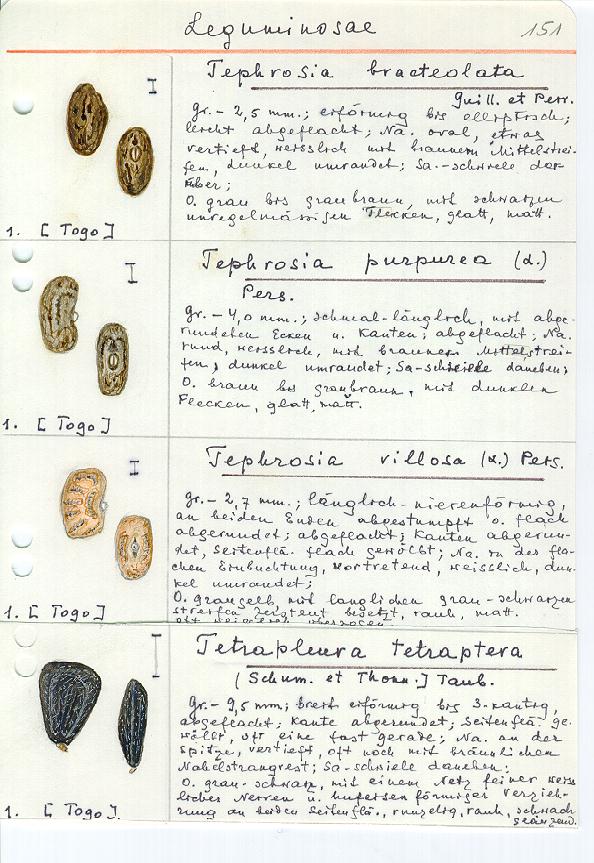 Leguminosae 151
Tephrosia bracteolata
Guill. et Perr.
gr. - 2,5 mm.; eiförmig bis elliptisch;
leicht abgeflacht; Na. oval, etwas
vertieft, weisslich mit braunem Mittelstrei-
fen, dunkel umrandet; Sa.-schwiele dar-
über;
O. grau bis graubraun, mit schwarzen
unregelmässigen Flecken, glatt, matt.
1. [Togo]
Tephrosia purpurea (L.)
Pers.
gr. - 4,0 mm.; schmal-länglich, mit abge-
rundeten Ecken u. Kanten; abgeflacht; Na.
rund, weisslich, mit braunem Mittelstrei-
fen, dunkel umrandet; Sa-schwiele daneben;
O. braun bis graubraun, mit dunklen
Flecken, glatt, matt.
1. [Togo]
Tephrosia villosa (L.) Pers.
gr. - 2,7 mm.; länglich-nierenförmig,
an beiden Enden abgestumpft o. flach
abgerundet; abgeflacht; Kanten abgerun-
det, Seitenflä. flach gewölbt; Na. in der fla-
chen Einbuchtung, vortretend, weisslich, dun-
kel umrandet;
O. graugelb, mit länglichen grau-schwarzen
streifen besetzt, rauh, matt.
oft überzogen.
1. [Togo]
Tetrapleura tetraptera
(Schum. et Thonn.) Taub.
gr. - 9,5 mm; breit eiförmig bis 3-kantig,
abgeflacht; Kante abgerundet; Seitenflä. ge-
wölbt, oft eine fast gerade; Na. an der
spitze, vertieft, oft noch mit bräunlichen
Nabelstrangrest; Sa-schwiele daneben;
O. grau-schwarz, mit einem Netz feiner weiss-
licher Nerven u. hufeisenförmiger Verzieh-
rung an beiden Seitenflä., runzelig, rauh, schwach
glänzend.
1. [Togo]